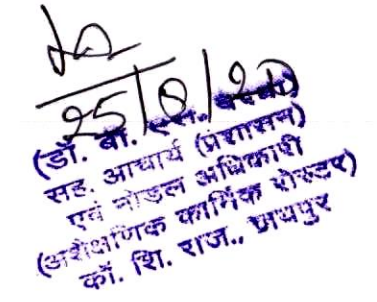 25/8/20
(डॉ. बी. एल.
सह. आचार्य (प्रशासन)
एवं नोडल अधिकारी
(अशैक्षणिक कार्मिक रोस्टर)
कॉ. शि. राज., जयपुर